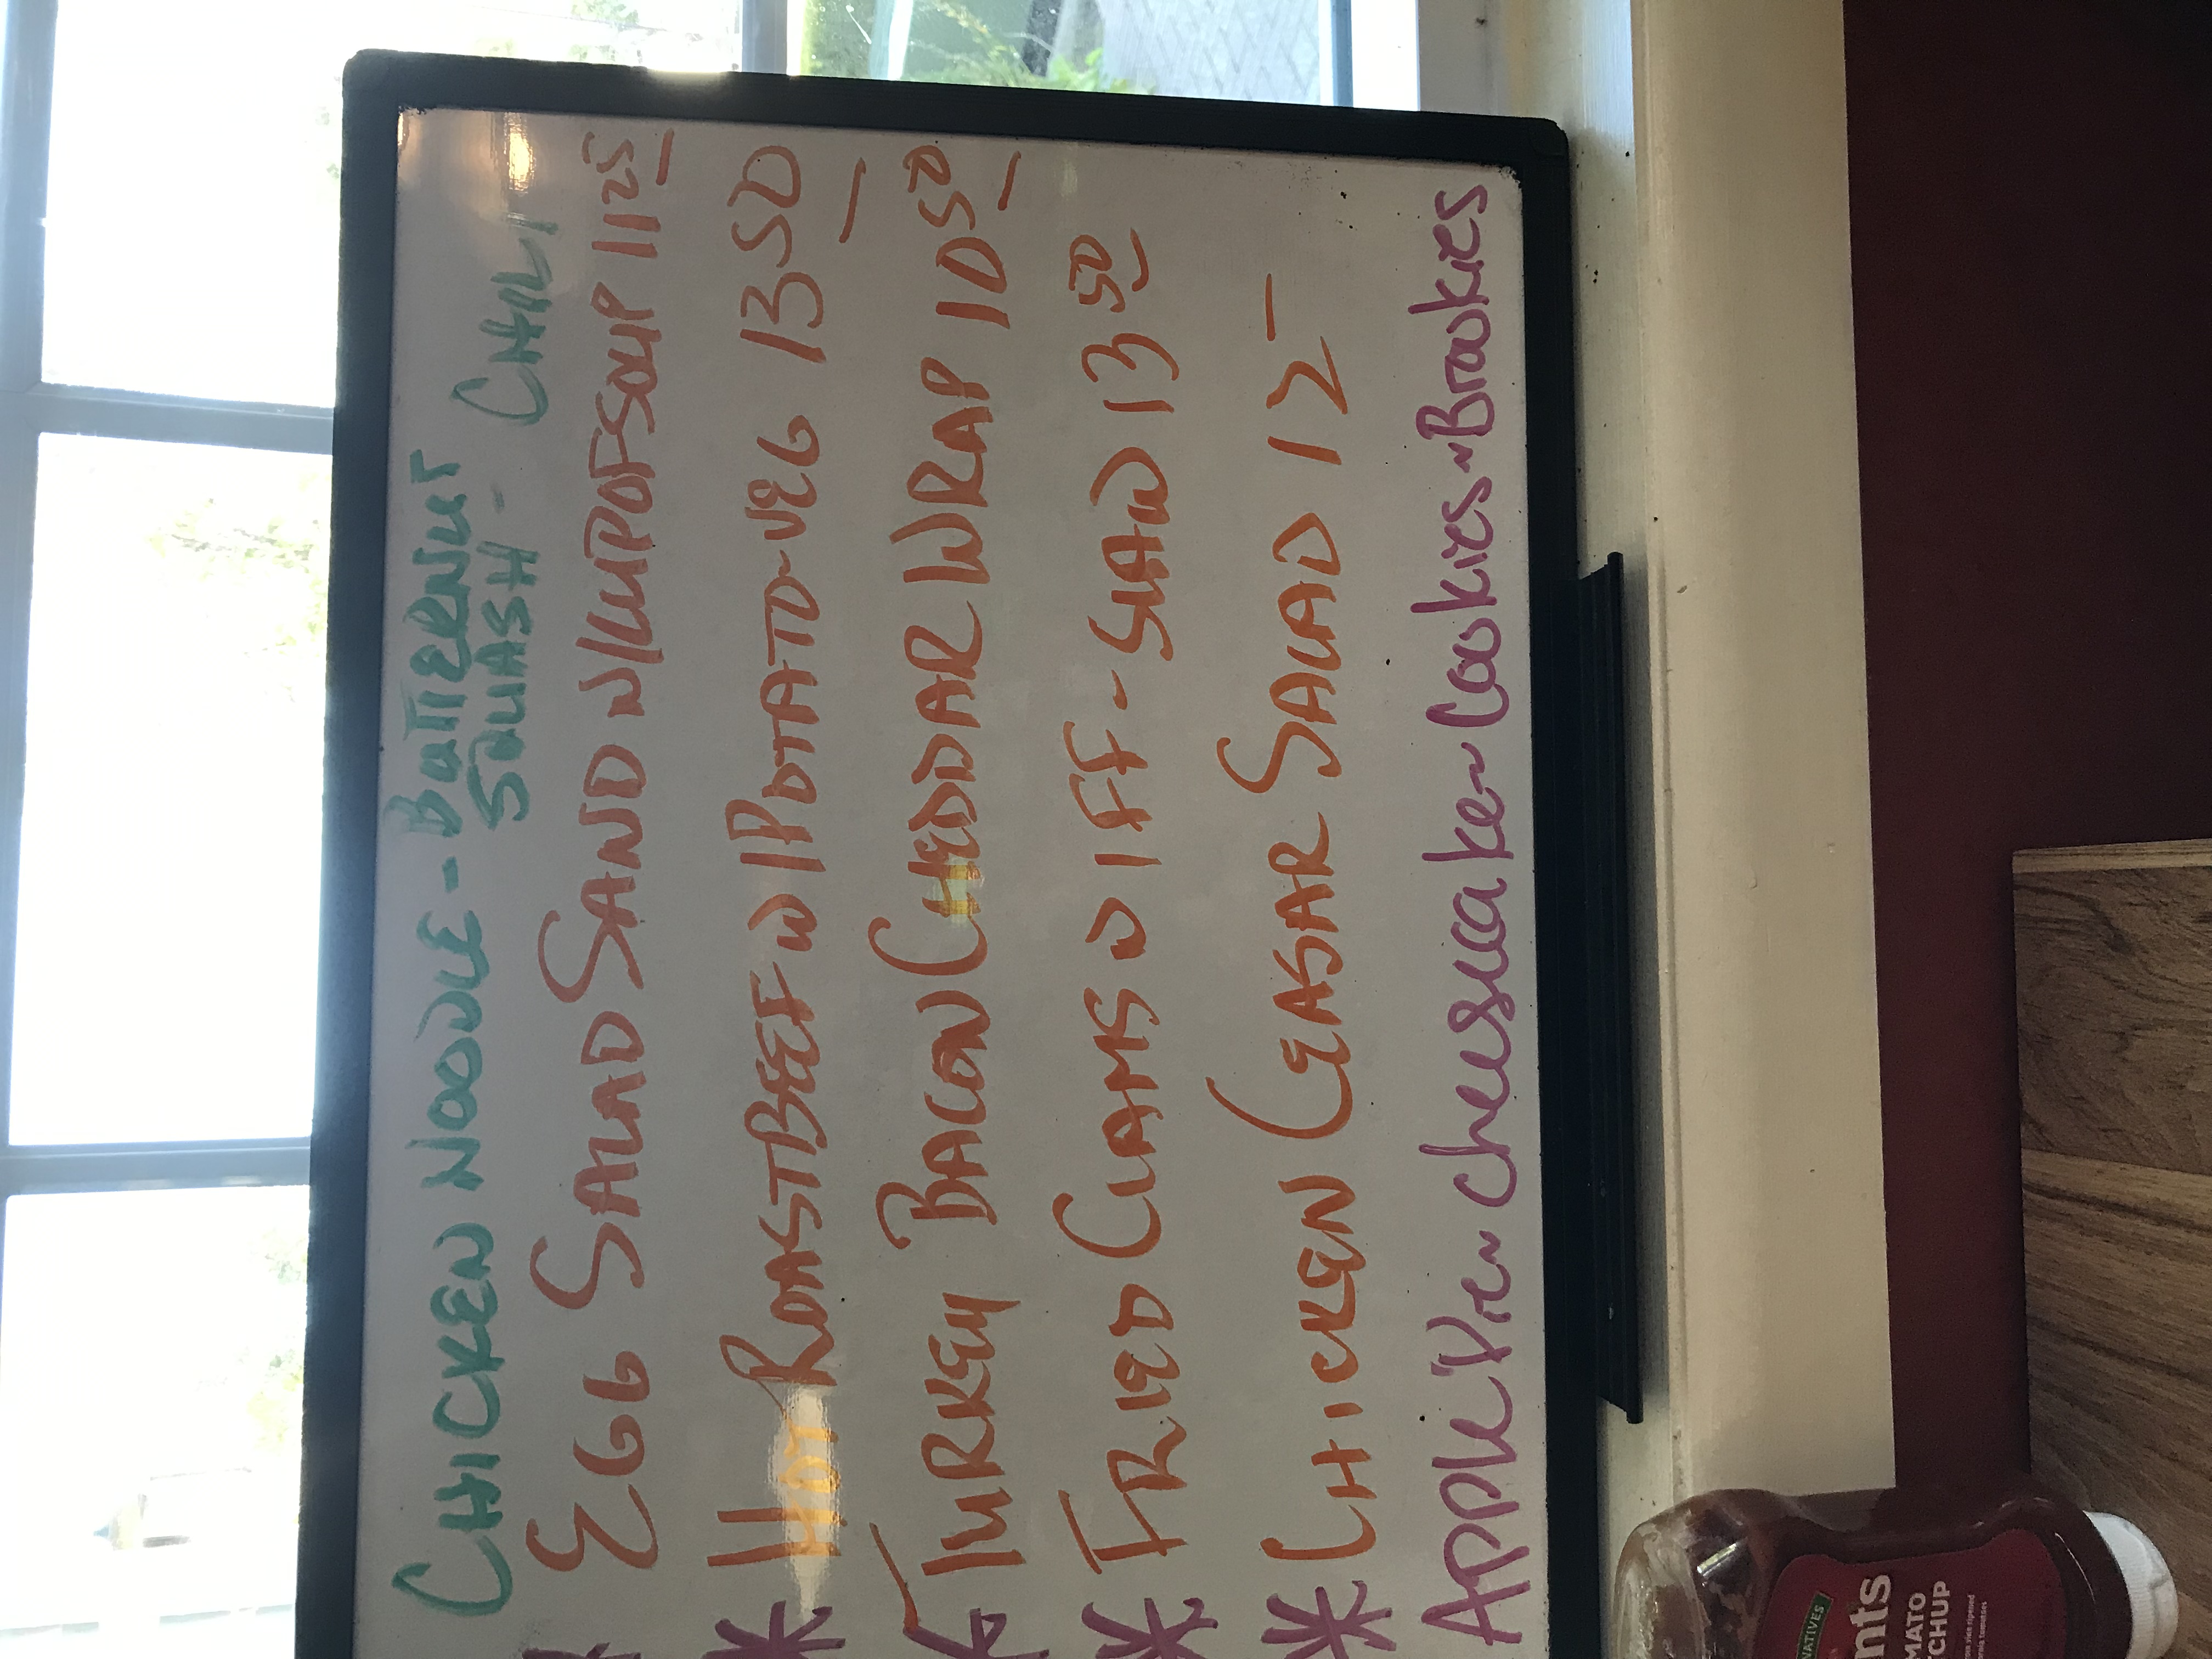 CHICKEN NOODLE - BUTTERNUT
SQUASH - CHILI
EGG SALAD SAND W/CUPOFSOUP 11 25
* HOT ROASTBEEF W/POTATO-VEG 13 50
* TURKEY BACON CHEDDAR WRAP 10 50
* FRIED CLAMS W/FF-SLAW 13 50
* CHICKEN CEASAR SALAD 12 -
Apple Pie~Cheesecake~Cookies~Brookies
NATIVES
nts
MATO
TCHUP